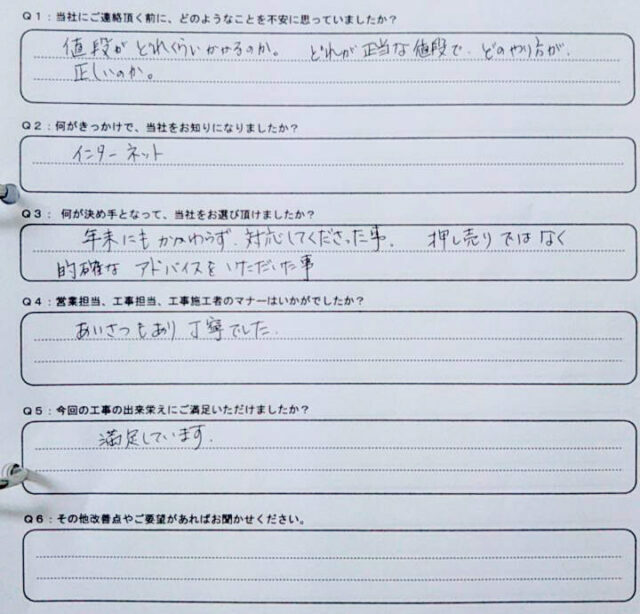 Q1：当社にご連絡頂く前に、どのようなことを不安に思っていましたか？
値段がどれくらいかかるのか。 どれが正当な値段で、どのやり方が、
正しいのか。
Q2：何がきっかけで、当社をお知りになりましたか？
インターネット
Q3： 何が決め手となって、当社をお選び頂けましたか？
年末にもかかわらず、対応してくださった事、 押し売りではなく
的確な アドバイスをいただいた事
Q4：営業担当、工事担当、工事施工者のマナーはいかがでしたか？
あいさつもあり丁寧でした。
Q5：今回の工事の出来栄えにご満足いただけましたか？
満足しています。
Q6：その他改善点やご要望があればお聞かせください。